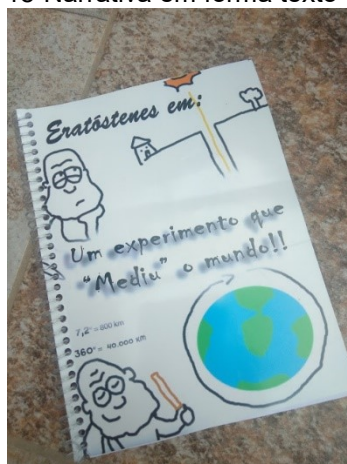 10 Narrativa em forma texto
Eratóstenes em:
Um experimento que
"Mediu" o mundo!!
7,2° = 800 km
360° = 40.000 km